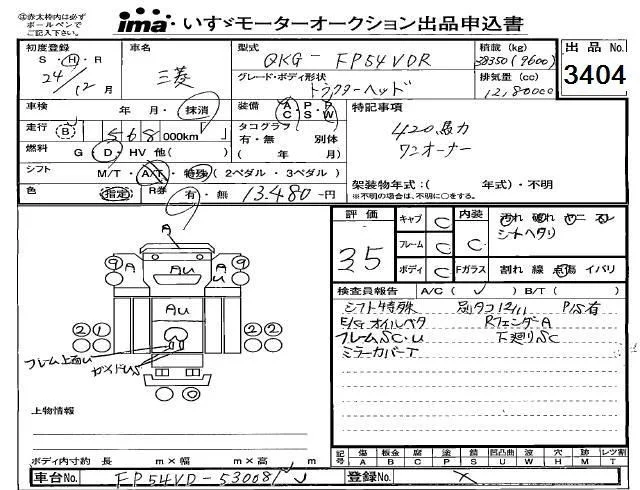 ㊟赤太枠内は必ず
ボールペンで
ご記入下さい。
ima いすゞモーターオークション出品申込書
初度登録 S・H・R 24/12月
車名 三菱
型式 QKG- FP54VDR
積載 (kg) 38350 (9600)
出品 No. 3404
グレード・ボディ形状 トラクターヘッド
排気量 (cc) 12,800cc
車検 年 月・抹消
装備 A/C P/S P/W
特記事項
走行 B 568000km
タコグラフ 有・無 別体
( 年 月)
420馬力
ワンオーナー
燃料 G・D・HV 他( )
シフト M/T・A/T・特殊 (2ペダル・3ペダル)
架装物年式:( 年式)・不明
※不明の場合は、不明に○をする。
色 指定 R券 有・無 13,480円
評価 35
キャブ C
内装 C
汚れ 破れ ヤニ スレ
シートヘタリ
フレーム C
ボディ C
Fガラス 割れ 線 点傷 イバリ
検査員報告 A/C( ) B/T( )
シフト特殊 別タコ12/11 P/S有
E/gオイルベタ RフェンダーA
フレームSC・U 下廻りSC
ミラーカバーT
A
9 A Au A 9
U
Au
2 1 2 2
フレーム上面U
カメドUS
上物情報
ボディ内寸約 長 m×幅 m×高 m
記号 傷A 板金B 腐C 塗P 錆S 凹凸曲U 波W 穴H 跡M レツ割T
車台No. FP54VD-530081
登録No.